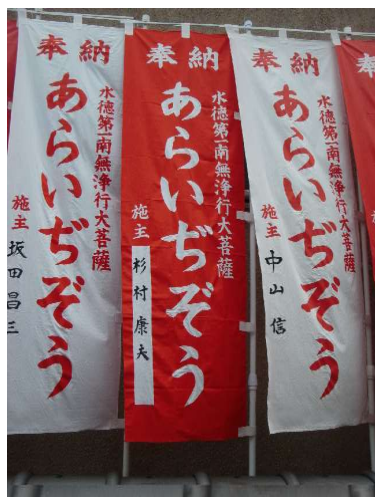 奉
奉納
水徳第一南無浄行大菩薩
あらいぢぞう
施主 中山 信
奉納
水徳第一南無浄行大菩薩
あらいぢぞう
施主 杉村康夫
奉納
水徳第一南無浄行大菩薩
あらいぢぞう
施主 坂田昌三